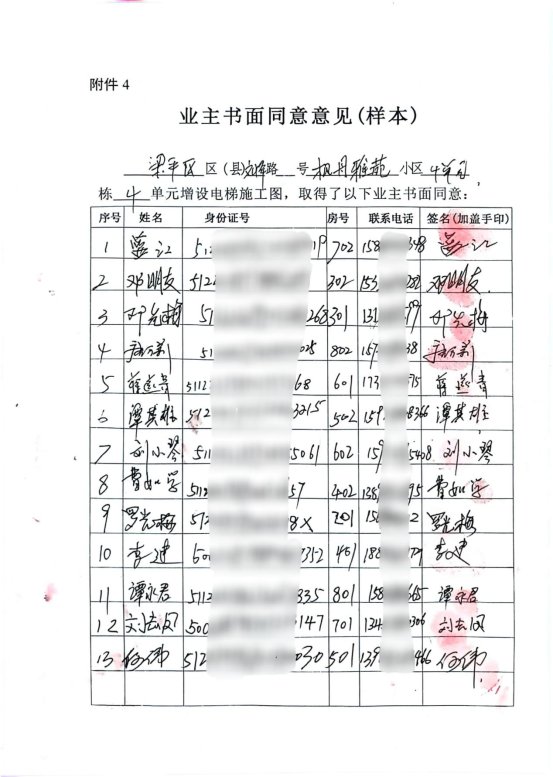 附件 4
业主书面同意意见(样本)
梁平区 区(县) 路 号 枫丹雅苑 小区 4单元
栋 4 单元增设电梯施工图，取得了以下业主书面同意：
序号 姓名 身份证号 房号 联系电话 签名(加盖手印)
1 江 51 19 702 158 348 江
2 邓明友 5122 302 153 邓明友
3 邓 梅 51 263 301 131 99 邓 梅
4 51 025 802 157 38
5 5112 68 601 173 75
6 谭其雄 512 3215 502 159 8366 谭其雄
7 刘小琴 511 5061 602 159 5408 刘小琴
8 曹如学 5112 57 402 138 95 曹如学
9 罗光梅 512 8X 201 158 2 罗光梅
10 李建 500 7352 401 188 79 李建
11 谭永君 5112 335 801 158 565 谭永君
12 刘志凤 500 147 701 134 306 刘志凤
13 何伟 512 030 501 139 466 何伟